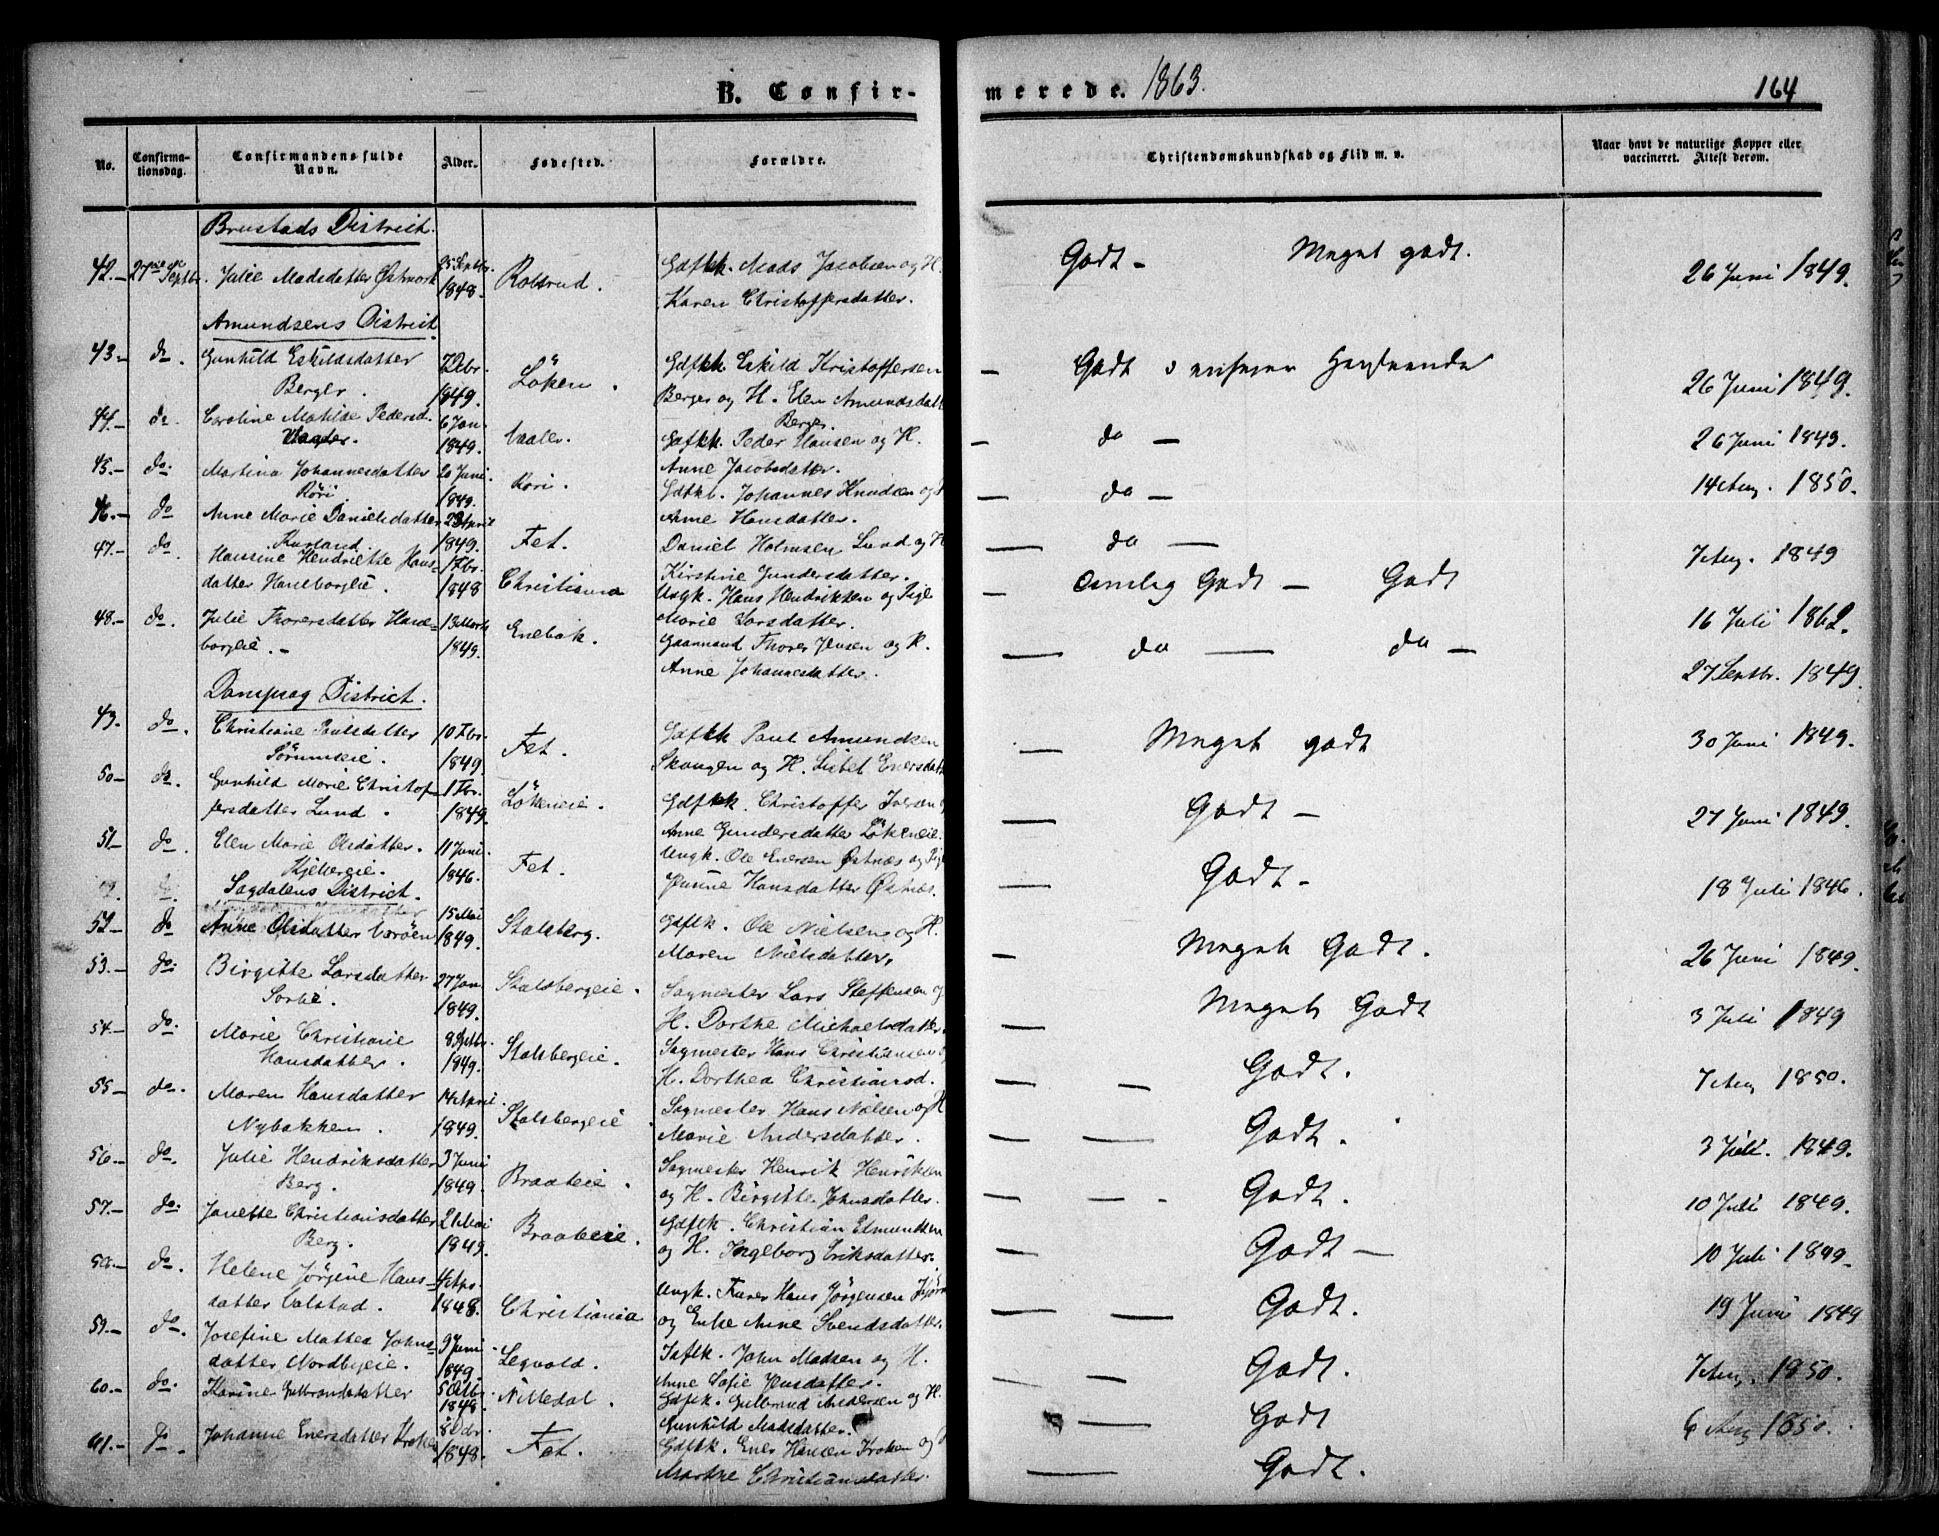 B. Confir-
merede. 1863.
164
No.
Confirma-
tionsdag.
Confirmandens fulde
Navn.
Alder.
Fødested.
Forældre.
Christendomskundskab og Flid m. v.
Naar havt de naturlige Kopper eller
vaccineret. Attest derom.
Brustads District.
42.- 27de Septbr. Julie Madsdatter Østmork 25 Septbr. 1848. Robsrud. Gdfkk. Mads Jacobsen og H.
Karen Christoffersdatter.
Godt - Meget godt. 26 Juni 1849.
Amundsens District
43- do. Gunhild Eskildsdatter
Berger. 7 Debr. 1849. Løken. Gdfkk. Eskild Kristoffersen
Berger og H. Elen Amundsdatt
Berger.
- Godt 26 Juni 1849.
44.- do. Caroline Matilde Pedersd.
6 Jan. 1849. Vaaler. Gdfkk. Peder Hansen og H.
Anne Jacobsdatter.
- do - 26 Juni 1849.
45.- do. Martina Johannesdatter
Röri 20 Juni. 1849. Röri. Johannes Knudsen og
Anne Hansdatter.
- do - 14 Aug. 1850.
46.- do Anne Marie Danielsdatter
23 April 1849. Fet. Daniel Holmsen Lund og H
Kirstine Gundersdatter.
- do - 7 Aug. 1849
47.- do Hansine Hendriette Hans-
datter Haneborgeie. 1 Fbr. 1848 Christiania Ungk. Hans Hendriksen og Pige
Marie Larsdatter.
- Temlig Godt - Godt 16 Juli 1862.
48.- do. Julie Thorersdatter Hane-
borgeie.- 13 Marts 1849. Enebak. Gaardmand Thorer Jensen og H.
Anne Johannesdatter.
- do - do - 27 Septbr. 1849.
Dampsag District.
49. do. Christiane Paulsdatter
Sørumeie. 10 Fbr. 1849. Fet. Gdfkk Paul Amundsen
Skaugen og H. Lisbet Enersdatt
- Meget godt 30 Juni 1849.
50- do. Gunhild Marie Christof-
fersdatter Lund. 1 Fbr. 1849. Løkeneie. Gdfkk. Christoffer Iversen
Anne Gundersdatter Løkeneie.
- Godt - 27 Juni 1849.
51- do. Elen Marie Olsdatter.
Kjelbergeie. 11 Juni. 1846. Fet. Ungk. Ole Enersen Østnæs og Pige
Hansdatter Østnæs.
- Godt - 18 Juli 1846.
Sagdalens District.
52- do Anne Olsdatter 15 Mai 1849. Stalsberg. Gdfkk. Ole Nielsen og H.
Maren Nielsdatter.
- Meget Godt. 26 Juni 1849.
53.- do. Birgitte Larsdatter
27 Jan. 1849. Stalsbergeie. Sagmester Lars Steffensen og
H. Dorthe Michaelsdatter
- Meget Godt 3 Juli 1849
54.- do. Marie Christiane
Hansdatter. 8 Septbr. 1849. Stalsbergeie. Sagmester Hans Christiansen og
H. Dorthea Christiansd.
- - Godt. 7 Aug 1850.
55- do. Maren Hansdatter
Nybakken. 14 April 1849. Stalsbergeie Sagmester Hans Nilsen og H
Marie Andersdatter.
- - Godt. 3 Juli. 1849.
56.- do. Julie Hendriksdatter
Berg. 3 Juni 1849. Braateie. Sagmester Henrik Henriksen
og H. Birgitte Johnsdatter.
- - - Godt. 10 Juli 1849.
57.- do. Janette Christiansdatter
Berg. 21 Mai 1849. Braateeie. Gdfkk. Christian Elmundsen
og H. Ingeborg Eriksdatter.
- Godt - 10 Juli 1849.
58.- do. Helene Jørgine Hans-
datter Valstad. 4 Aps. 1848. Christiania Ungk. Hans Jørgensen
og Enke Anne Svendsdatter.
- - Godt. 19 Juni 1849
59.- do. Josefine Mathea Johns-
datter Nordbyeie. 9 Juni 1849. Leqvold. John Madsen og H.
Anne Sofie Jensdatter.
- - Godt. 7 Aug. 1850.
60.- do. Karine Gulbrandsdatter 5 Octbr. 1848. Nittedal. Gdfkk. Gulbrand Andersen og H.
Gunhild Madsdatter.
- Godt 6 Aug 1850.
61.- do. Johanne Enersdatter Kroken 8 Debr. 1848. Fet. Gdfkk. Ener Hansen Kroken og
Marthe Christiansdatter.
- Godt.